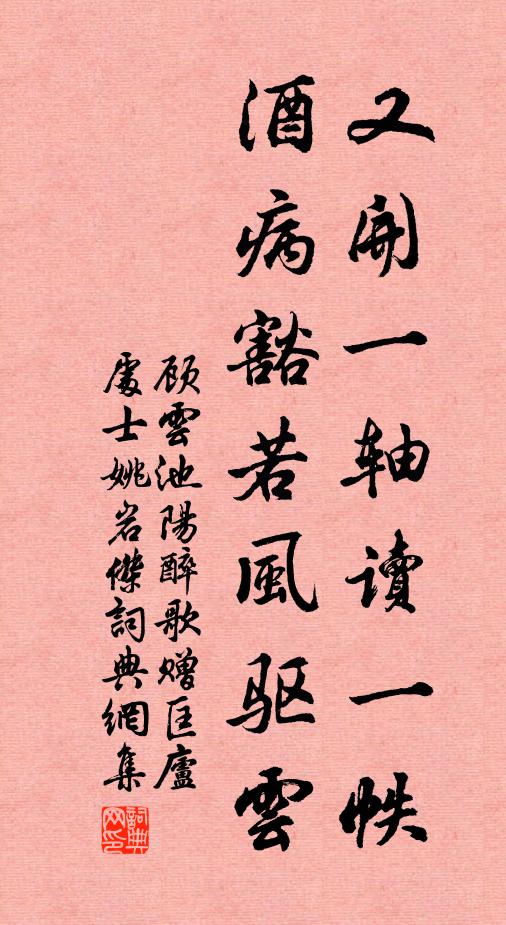 又开一轴读一帙
酒病豁若風驱雲
顾雲池陽醉歌赠匡廬
處士姚岩傑詞典網集
詞典网印